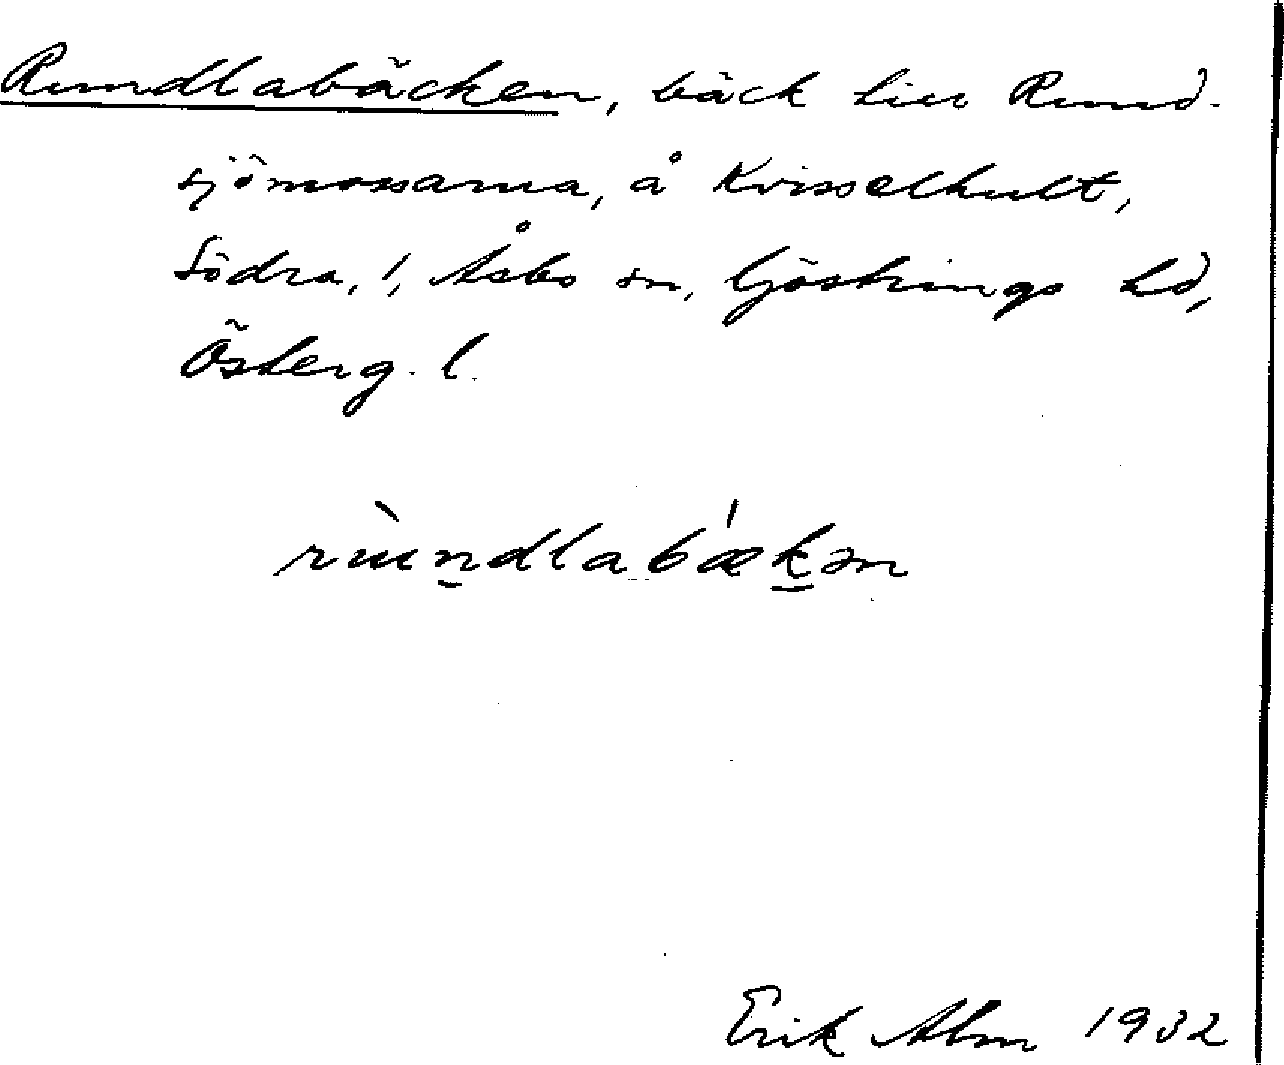 Rundlabäcken, bäck till Rund-
sjömossarna, å Kvisselhult,
Södra, 1, Åsbo sn, Göstrings hd,
Österg. l.
rùndlabǽkən
Erik Abm 1932